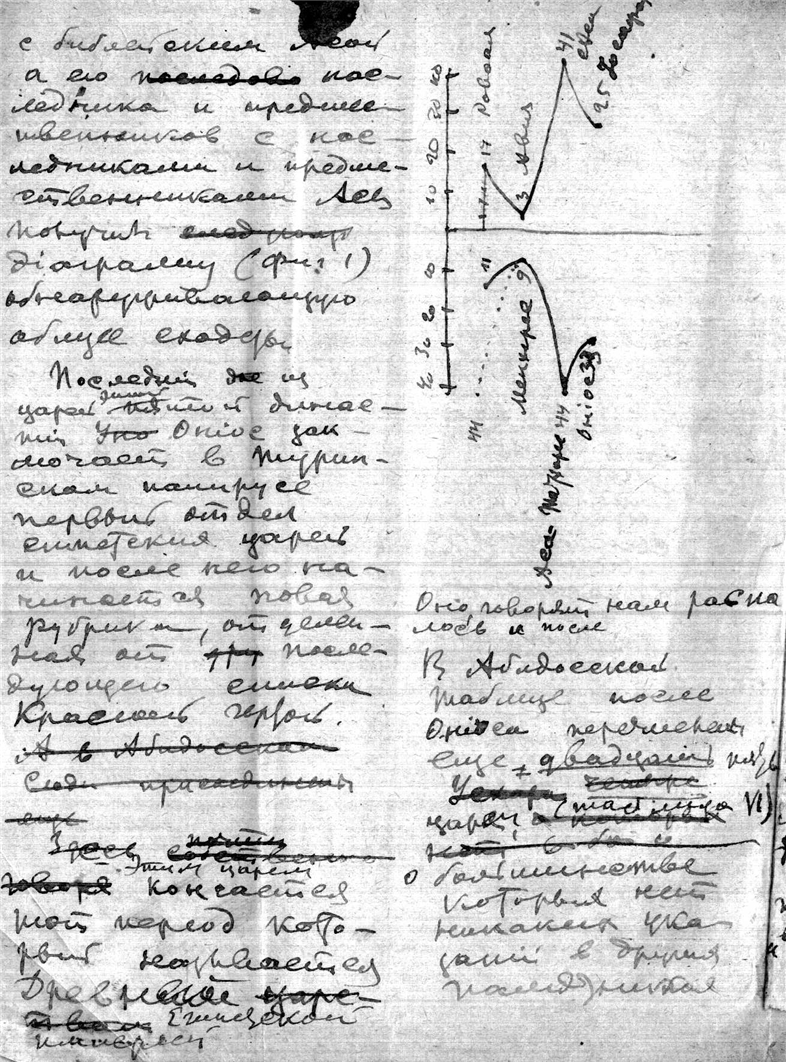 с библейским Асой
а его последово пос-
ледника и предше-
ственников с нас-
ледниками и предше-
ственниками Асы
получим следующ
діаграмму (фиг 1)
обнаруживающую
общее сходство
Последній из
царей пятой динас-
тіи Уно Оніос зак-
лючает в Турин-
ском папирусе
первый отдел
египетских царей
и после него на-
чинается новая
рубрика, отделен-
ная от друг после-
дующего списка
Красной чертой.
А в Абидосской
сюда присоединены
еще
Здесь почти собственно
Этим царем
говоря кончается
тот период кото-
рый называется
Древней царс-
твом Египетской
имперіей
40 30 20 10 10 20 30 40
17 Ровоам
3 Авія
41 Аса
25 Іосафат
44
11
Менкерес 9
Аса- 44
Оніос 33
Оніо говорят нам распа
лось и после
В Абидосской
таблице после
Оніоса перечислены
еще двадцать
царей (таблица VI)
о большинстве
которых нет
никаких ука-
заній в других
памятниках